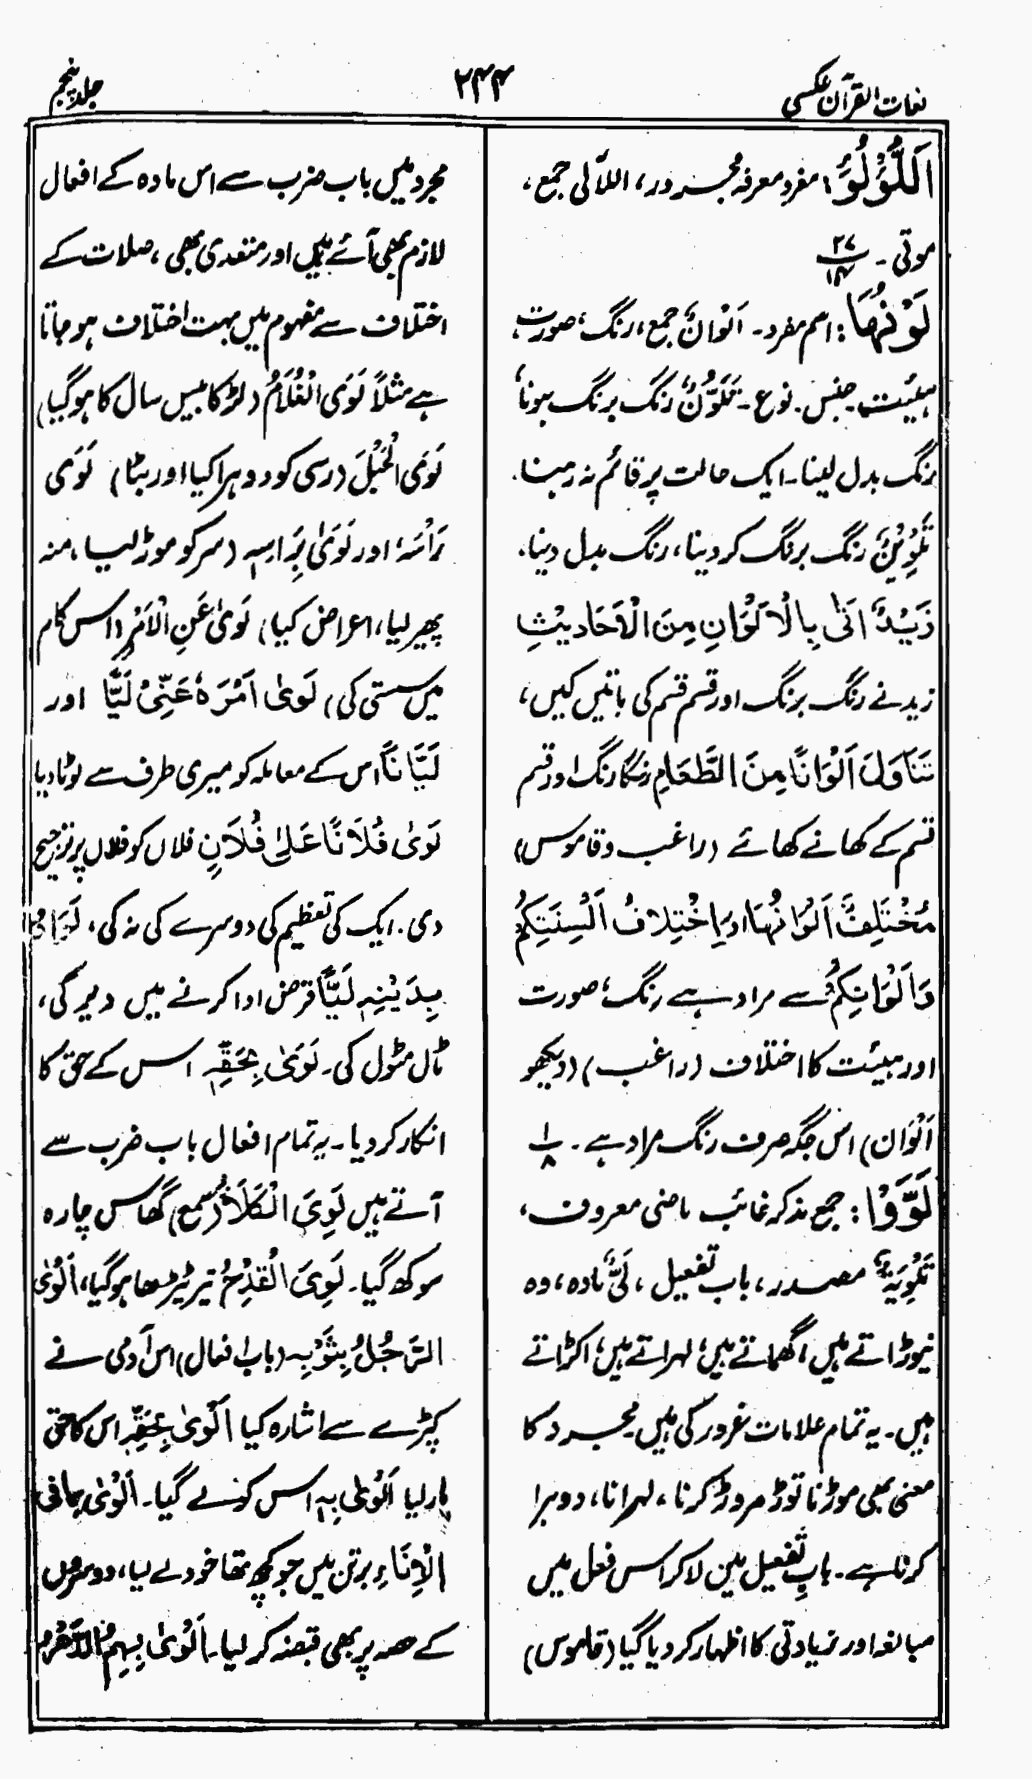 لغات القرآن عکسی
۲۴۴
جلد پنجم
اَللُّؤْلُؤُ: مفرد معرفہ مجرور، اللآلی جمع،
موتی۔ ۲۷/۱۴
لَوْنُهَا: اسم مفرد۔ اَلْوَانٌ جمع، رنگ، صورت،
ہیئت، جنس۔ نوع۔ تَلَوُّنٌ رنگ برنگ ہونا
رنگ بدل لینا۔ ایک حالت پر قائم نہ رہنا۔
تَلْوِیْنٌ رنگ برنگ کر دینا، رنگ بدل دینا۔
زَیْدٌ اَتٰی بِالْاَلْوَانِ مِنَ الْاَحَادِیْثِ
زید نے رنگ برنگ اور قسم قسم کی باتیں کیں،
تَنَاوَلَ اَلْوَانًا مِنَ الطَّعَامِ رنگا رنگ اور قسم
قسم کے کھانے کھائے (راغب و قاموس)
مُخْتَلِفٌ اَلْوَانُهَا اور اِخْتِلَافُ اَلْسِنَتِکُمْ
وَاَلْوَانِکُمْ سے مراد ہے رنگ، صورت
اور ہیئت کا اختلاف (راغب) (دیکھو
اَلْوَان) اس جگہ صرف رنگ مراد ہے۔ ۱/۸
لَوَّوْا: جمع مذکر غائب ماضی معروف،
تَلْوِیَةٌ مصدر، باب تفعیل، لَیٌّ مادہ، وہ
نیوڑاتے ہیں، گھماتے ہیں، لہراتے ہیں، اکڑاتے
ہیں۔ یہ تمام علامات غرور کی ہیں۔ مجرد کا
معنی بھی موڑنا توڑ مروڑ کرنا، لہرانا، دوہرا
کرنا ہے۔ باب تفعیل میں لا کر اس فعل میں
مبالغہ اور زیادتی کا اظہار کر دیا گیا (قاموس)
مجرد میں باب ضرب سے اس مادہ کے افعال
لازم بھی آئے ہیں اور متعدی بھی، صلات کے
اختلاف سے مفہوم میں بہت اختلاف ہو جاتا
ہے مثلاً لَوَی الْغُلَامُ (لڑکا بیس سال کا ہو گیا)
لَوَی الْحَبْلَ (رسی کو دوہرا کیا اور بٹا) لَوَی
رَاْسَهٗ اور لَوٰی بِرَاسِهٖ (سر کو موڑ لیا، منہ
پھیر لیا، اعراض کیا) لَوٰی عَنِ الْاَمْرِ (اس کام
میں سستی کی) لَوٰی اَمْرَهٗ عَنِّیْ لَیًّا اور
لَیَّانًا اس کے معاملہ کو میری طرف سے لوٹا دیا
لَوٰی فُلَانًا عَلٰی فُلَانٍ فلاں کو فلاں پر ترجیح
دی۔ ایک کی تعظیم کی دوسرے کی نہ کی،
بِدَیْنِهٖ لَیًّا قرض ادا کرنے میں دیر کی،
ٹال مٹول کی۔ لَوٰی بِحَقِّهٖ اس کے حق کا
انکار کر دیا۔ یہ تمام افعال باب ضرب سے
آتے ہیں لَوِیَ الْکَلَأُ (سمع) گھاس چارہ
سوکھ گیا۔ لَوِیَ الْقِدْحُ تیر ٹیڑھا ہو گیا، اَلْوَی
الرَّجُلُ بِثَوْبِهٖ (باب افعال) اس آدمی نے
کپڑے سے اشارہ کیا اَلْوٰی بِحَقِّهٖ اس کا حق
مار لیا اَلْوٰی بِهٖ اس کو لے گیا۔ اَلْوٰی بِمَا فِی
الْاِنَاءِ برتن میں جو کچھ تھا خود لے لیا، دوسروں
کے حصہ پر بھی قبضہ کر لیا۔ اَلْوٰی بِهِمُ الدَّهْرُ